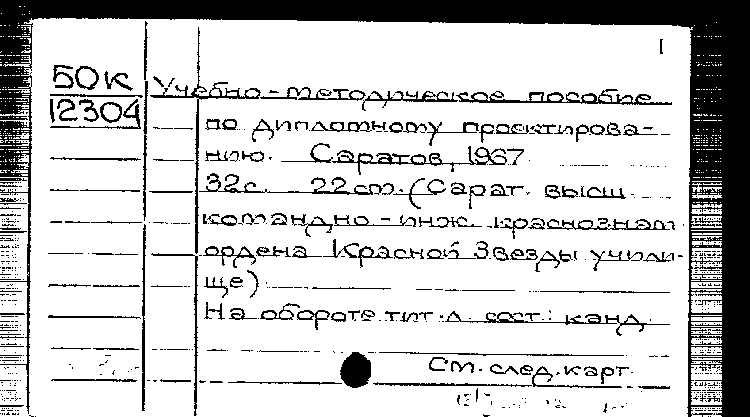 1
50К
12304
Учебно-методическое пособие
по дипломному проектирова-
нию. Саратов, 1967
32с. 22см. (Сарат. высш.
командно-инж. краснознам
ордена Красной Звезды учили-
ще)
На обороте тит. л. сост.: канд.
См. след. карт.